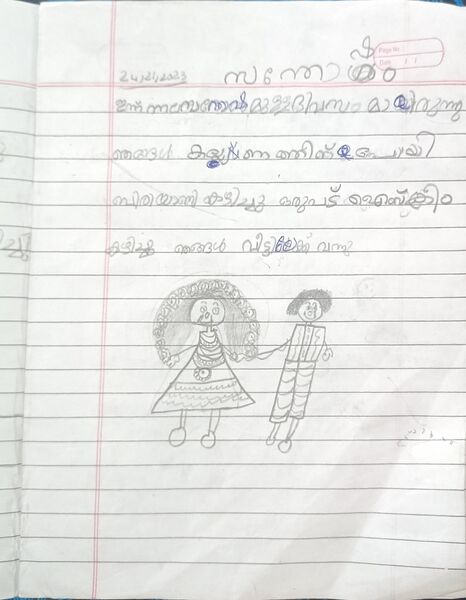 Page No.
Date / /
24/2/2023 സന്തോഷം
ഇന്ന് നല്ല സന്തോഷമുള്ള ദിവസം മായിരുന്നു
ഞങ്ങൾ കല്യാണത്തിന് പോയി
ബിരിയാണി കഴിച്ചു ഒരുപട് ഐസ്ക്രീം
കഴിച്ചു ഞങ്ങൾ വീട്ടിലേക്ക് വന്നു